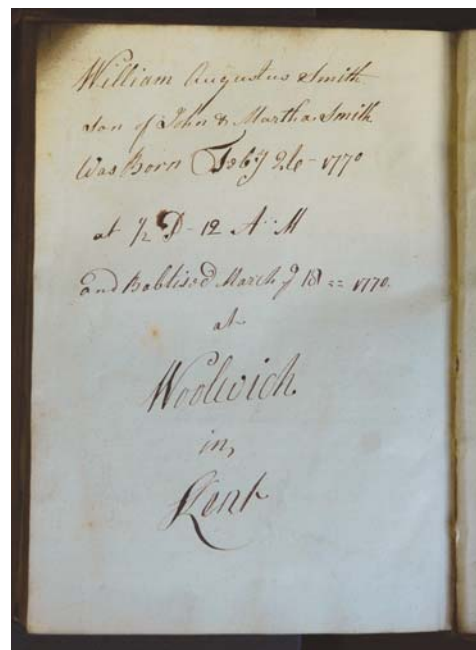 William Augustus Smith
son of John & Martha Smith
Was Born Feby 26 - 1770
at ½ P - 12 A M
and Babtised March y 18 == 1770.
at
Woolwich
in
Kent